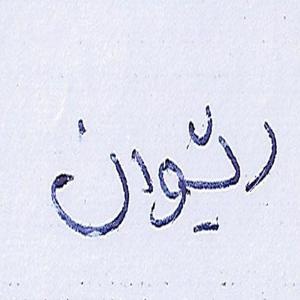 رێوان